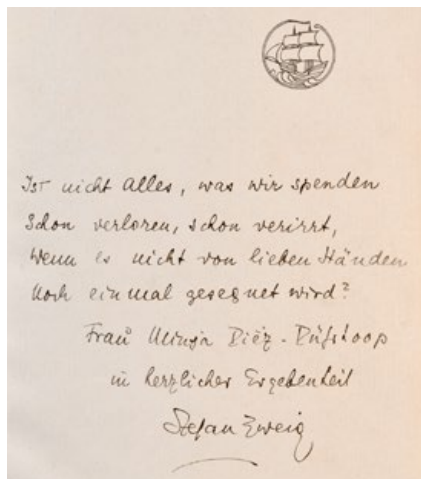 Ist nicht Alles, was wir spenden
Schon verloren, schon verirrt,
Wenn es nicht von lieben Händen
Noch einmal gesegnet wird?
Frau Minja Diéz - Dührkoop
in herzlicher Ergebenheit
Stefan Zweig